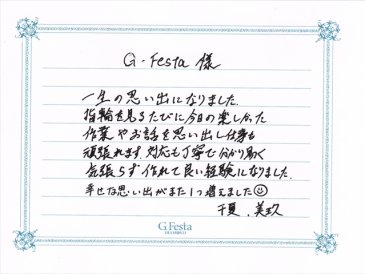 G-Festa 様
一生の思い出になりました。
指輪を見るたびに今日の楽しかった
作業やお話を思い出し仕事も
頑張れます。対応も丁寧で分かり易く
気張らず作れて良い経験になりました。
幸せな思い出がまた1つ増えました☺
千夏、美玖
G.Festa